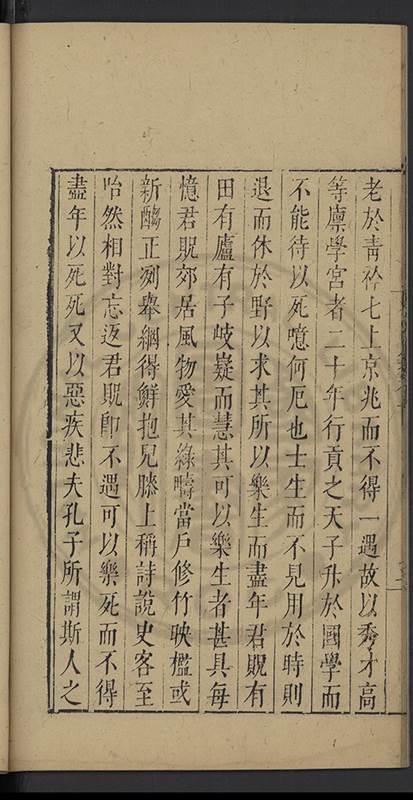 老於青衿七上京兆而不得一遇故以秀才高
等廪學宮者二十年行貢之天子升於國學而
不能待以死噫何厄也士生而不見用於時則
退而休於野以求其所以樂生而盡年君旣有
田有廬有子岐嶷而慧其可以樂生者甚具每
憶君旣郊居風物愛其綠疇當戶修竹映檻或
新醅正冽舉網得鮮抱兒膝上稱詩說史客至
怡然相對忘返君旣卽不遇可以樂死而不得
盡年以死死又以惡疾悲夫孔子所謂斯人之